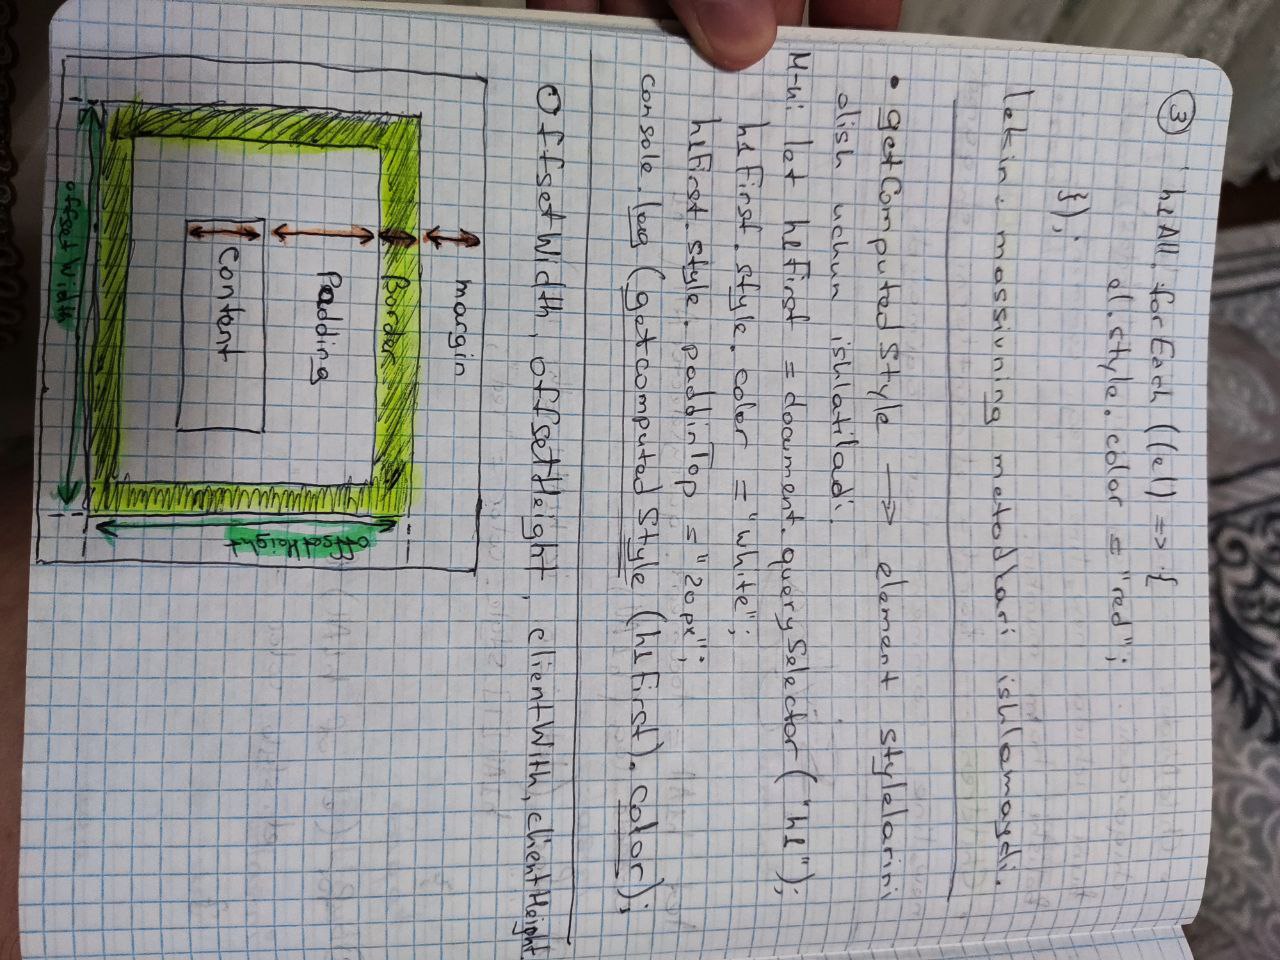 ③ h1All.forEach((el) => {
el.style.color = "red";
});
lekin: massivning metodlari ishlamaydi.
• getComputedStyle → element stylelarini
olish uchun ishlatiladi.
M-ni let h1First = document.querySelector("h1");
h1First.style.color = "white";
h1First.style.paddinTop = "20px";
console.log(getcomputedStyle(h1First).color);
OffsetWidth, offsetHeight, clientWith, clientHeight
margin
Border
Padding
Content
offsetHeight
offset Width